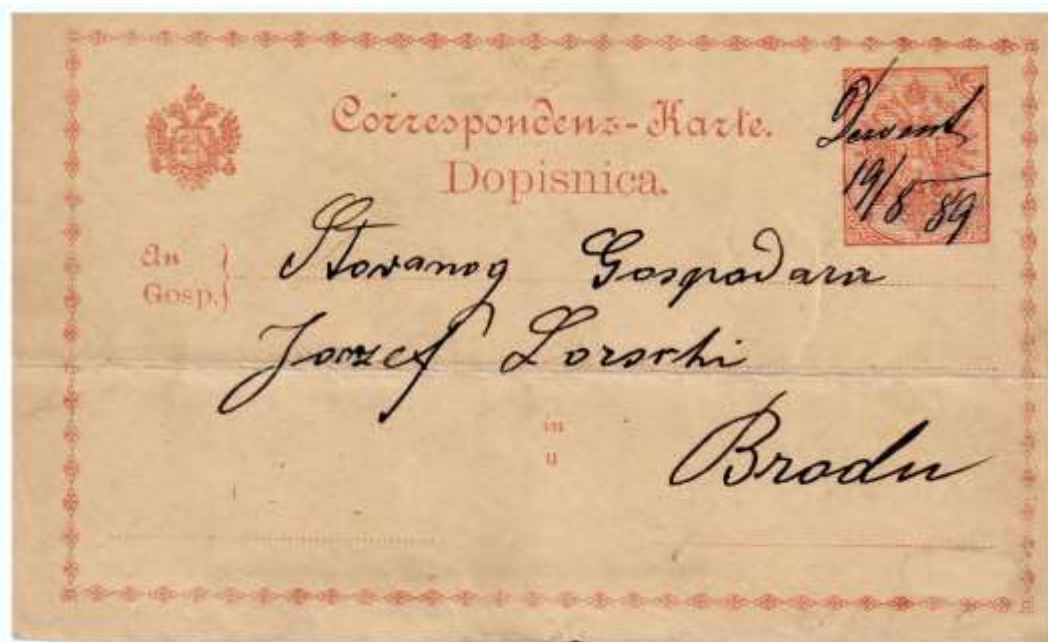 Correspondenz-Karte.
Dopisnica.
Dervent
19/8 89
An
Gosp.
Štovanog Gospodara
Jozzef
in
u
Brodu